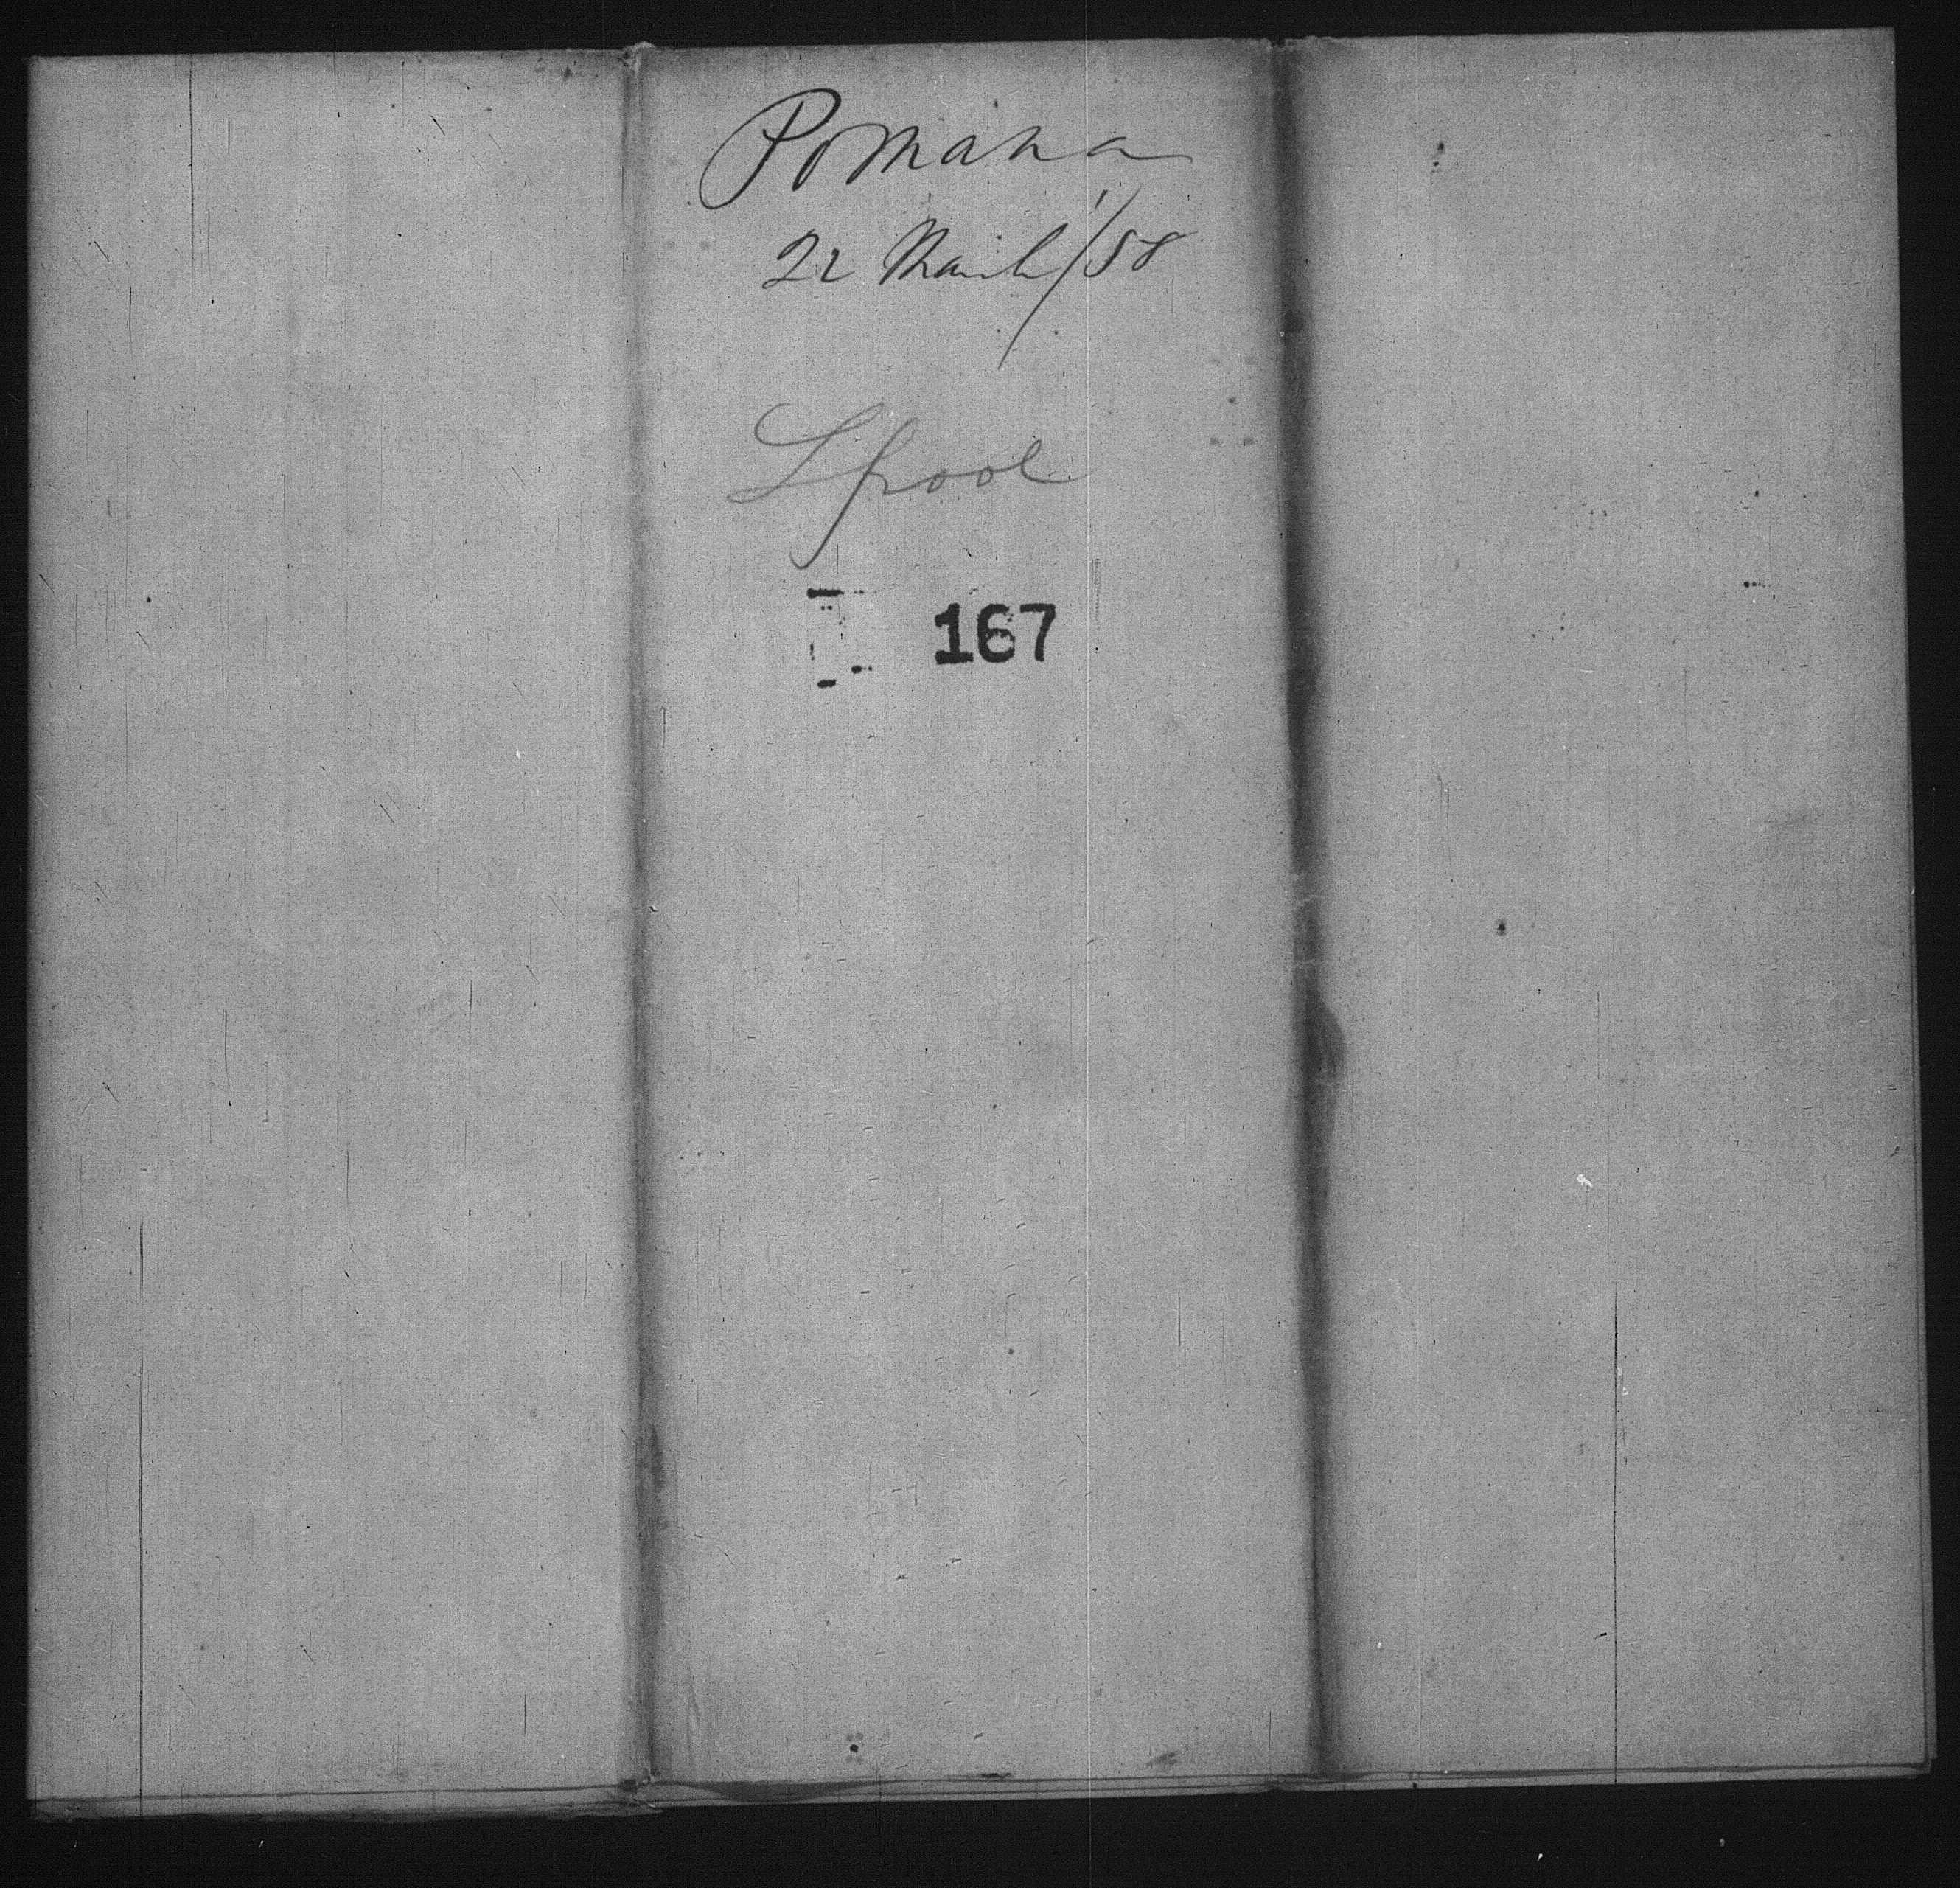 Pomana
22 March/58
Lpool
167